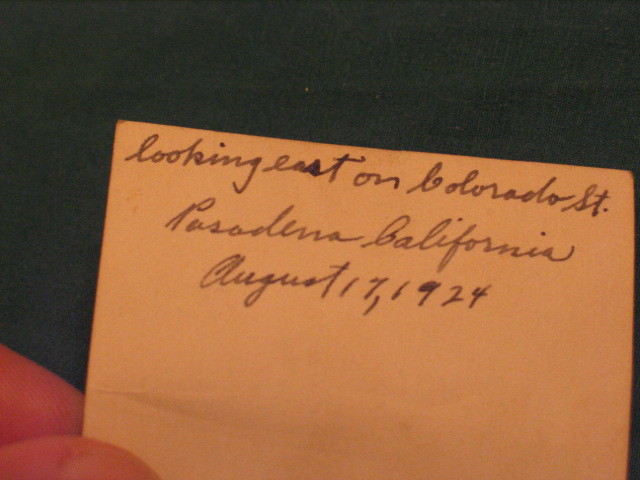 looking east on Colorado St.
Pasadena California
August 17, 1924